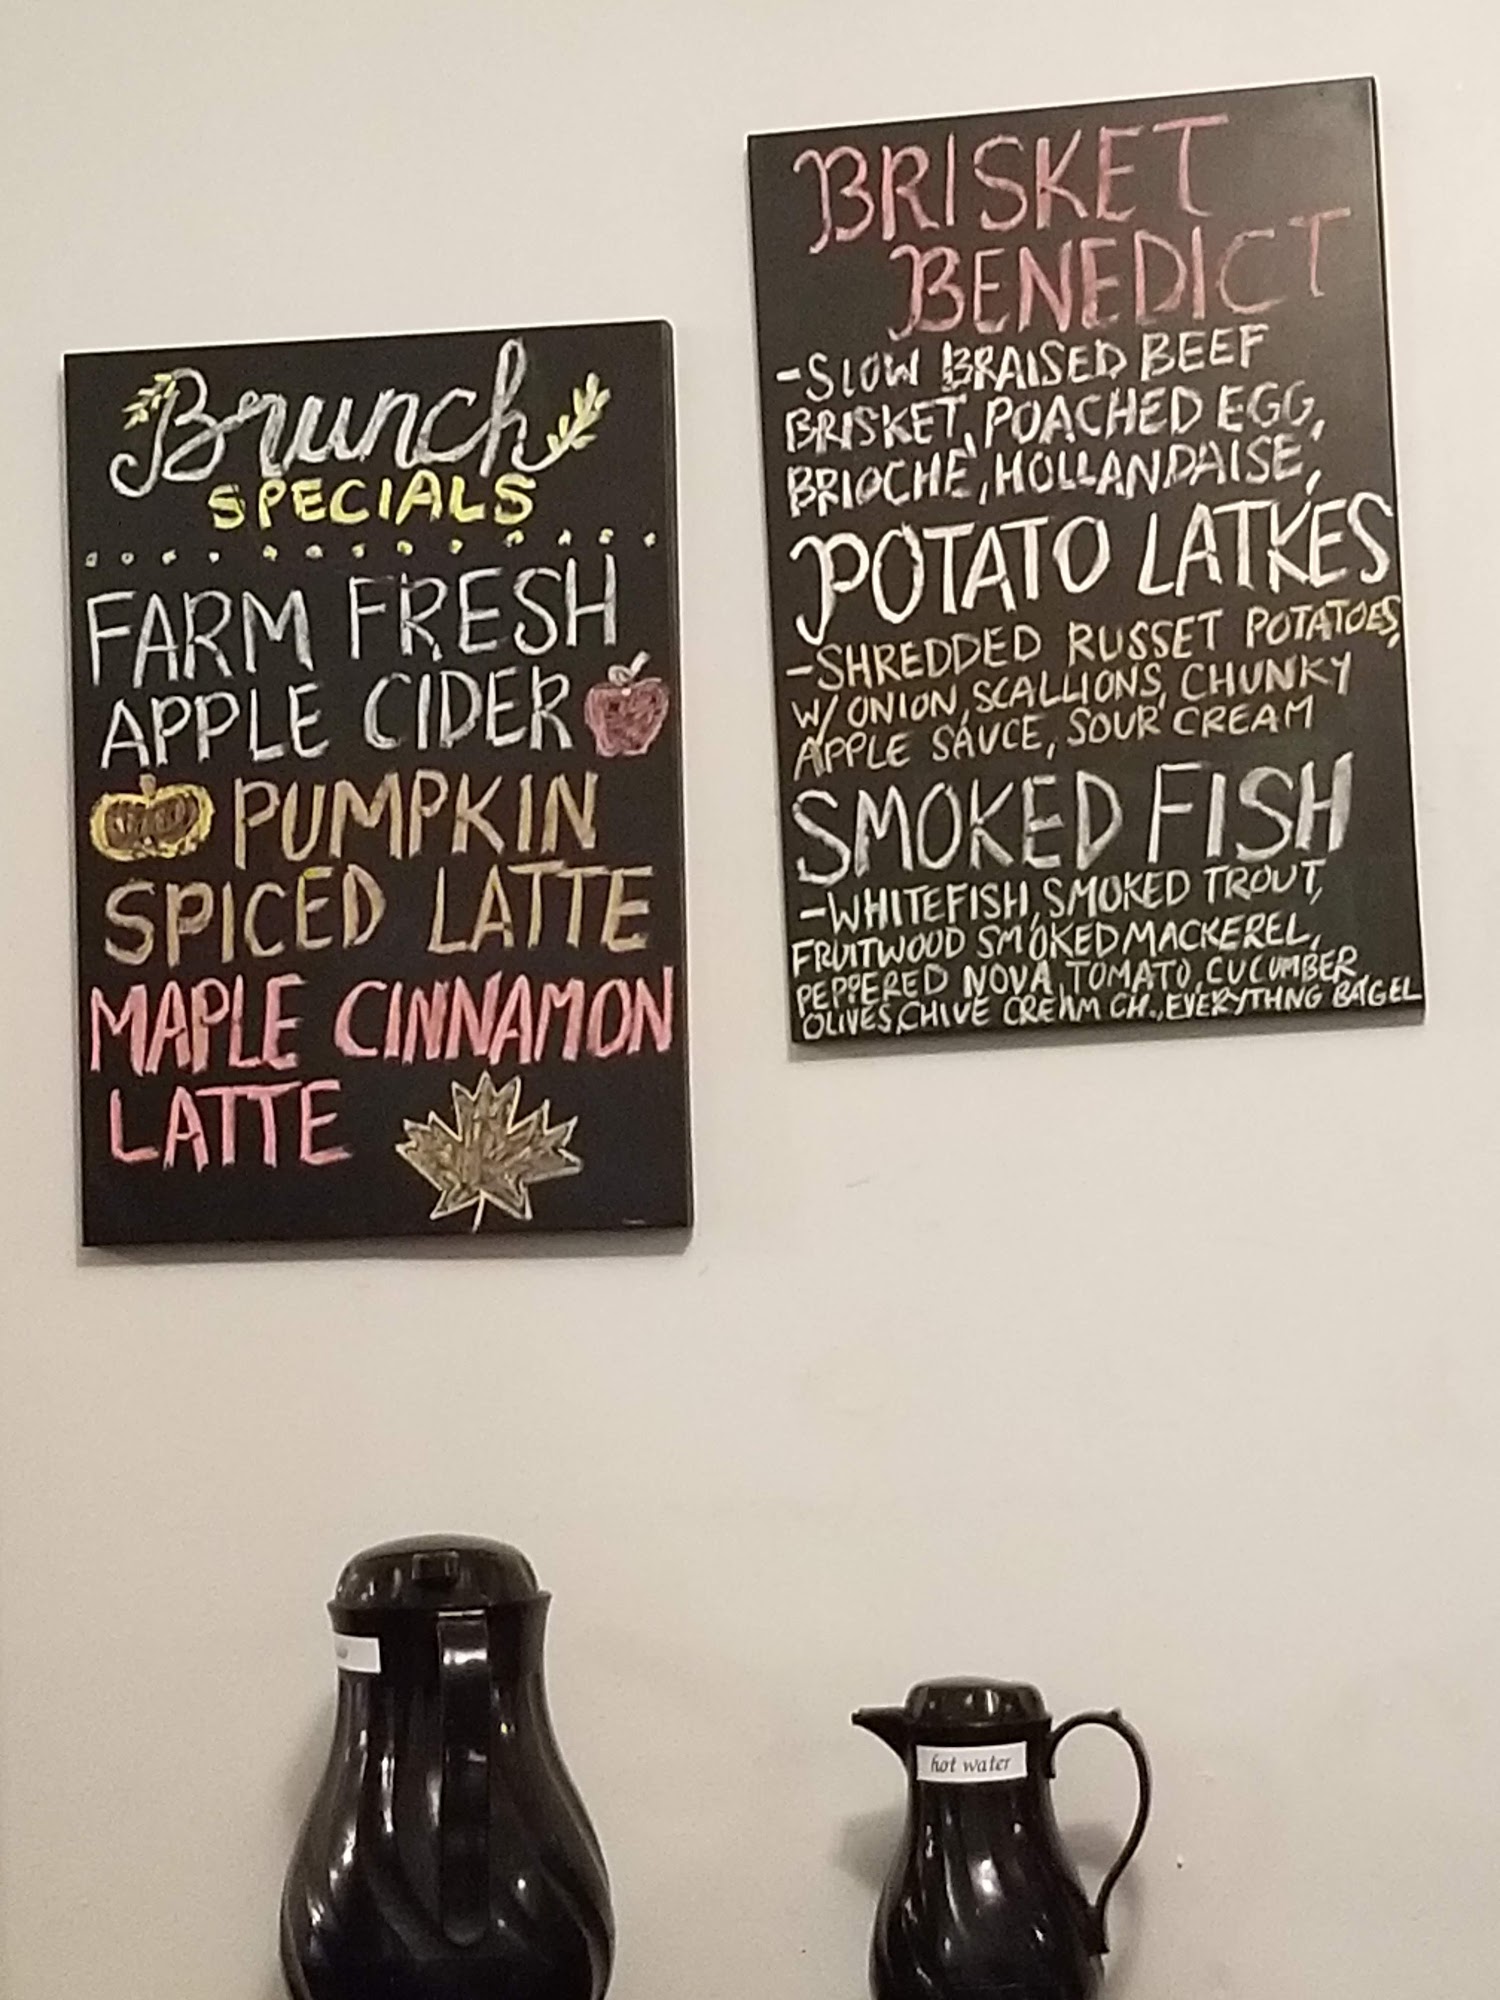 Brunch
SPECIALS
FARM FRESH
APPLE CIDER
PUMPKIN
SPICED LATTE
MAPLE CINNAMON
LATTE
BRISKET
BENEDICT
-SLOW BRAISED BEEF
BRISKET, POACHED EGG,
BRIOCHE, HOLLANDAISE,
POTATO LATKES
-SHREDDED RUSSET POTATOES,
W/ ONION, SCALLIONS, CHUNKY
APPLE SAUCE, SOUR CREAM
SMOKED FISH
-WHITEFISH, SMOKED TROUT,
FRUITWOOD SMOKED MACKEREL,
PEPPERED NOVA, TOMATO, CUCUMBER,
OLIVES, CHIVE CREAM CH., EVERYTHNG BAGEL
hot water